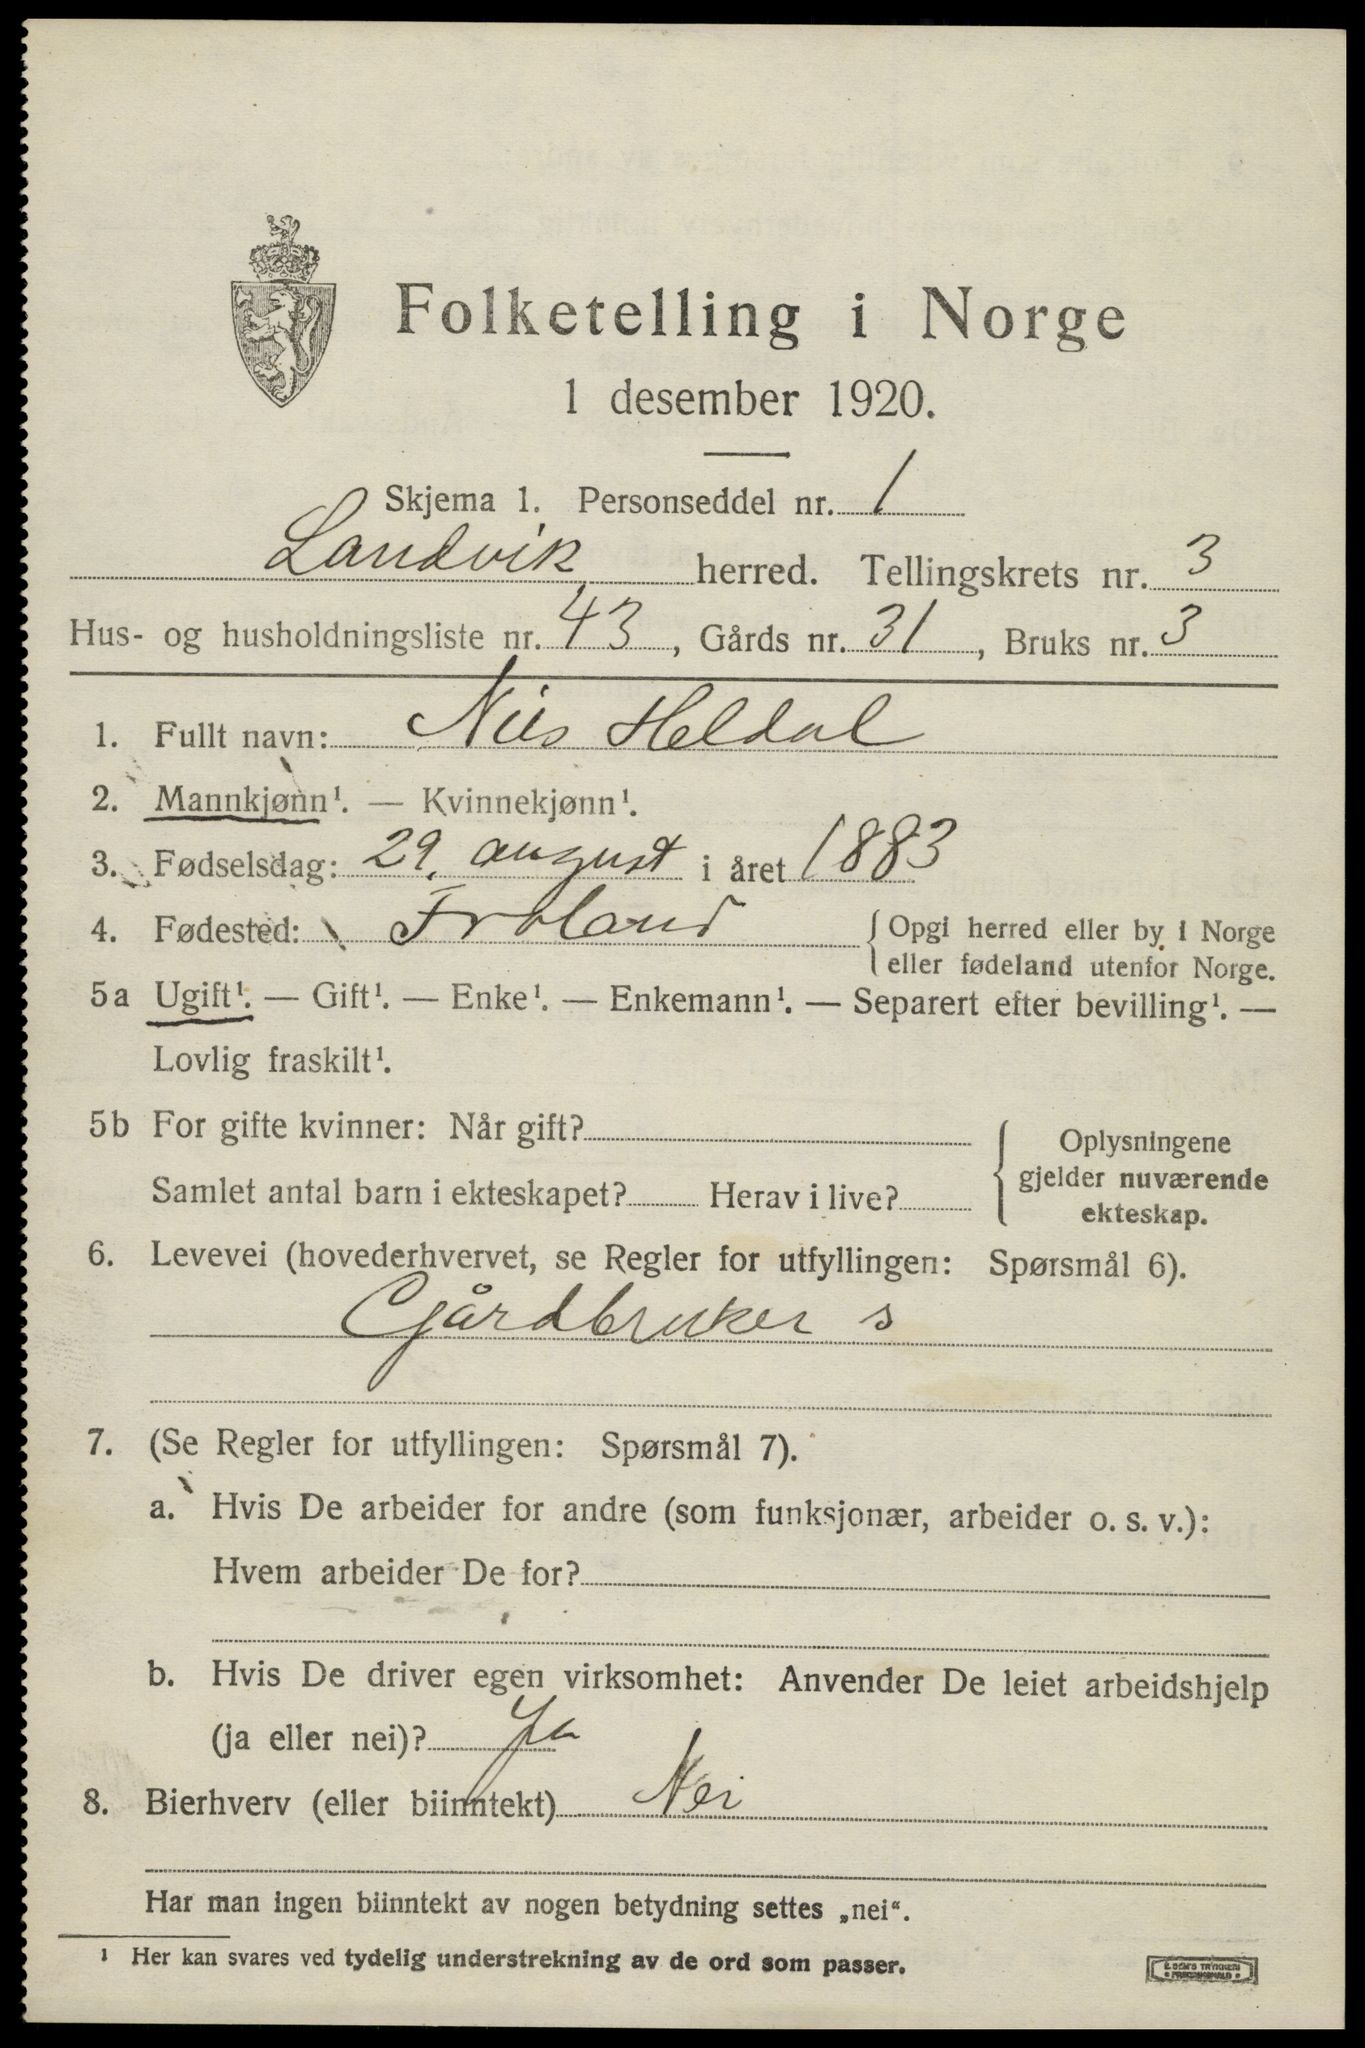 Folketelling i Norge
1 desember 1920.
Skjema 1. Personseddel nr. 1
Landvik herred. Tellingskrets nr. 3
Hus- og husholdningsliste nr. 43, Gårds nr. 31, Bruks nr. 3
1. Fullt navn: Nils Heldal
2. Mannkjønn¹. — Kvinnekjønn¹.
3. Fødselsdag: 29. august i året 1883
4. Fødested: Froland { Opgi herred eller by i Norge
eller fødeland utenfor Norge.
5a Ugift¹. — Gift¹. — Enke¹. — Enkemann¹. — Separert efter bevilling¹. —
Lovlig fraskilt¹.
5b For gifte kvinner: Når gift?
Samlet antal barn i ekteskapet? Herav i live?
{ Oplysningene
gjelder nuværende
ekteskap.
6. Levevei (hovederhvervet, se Regler for utfyllingen: Spørsmål 6).
Gårdbruker s
7. (Se Regler for utfyllingen: Spørsmål 7).
a. Hvis De arbeider for andre (som funksjonær, arbeider o. s. v.):
Hvem arbeider De for?
b. Hvis De driver egen virksomhet: Anvender De leiet arbeidshjelp
(ja eller nei)? Ja
8. Bierhverv (eller biinntekt) Nei
Har man ingen biinntekt av nogen betydning settes „nei“.
¹ Her kan svares ved tydelig understrekning av de ord som passer.